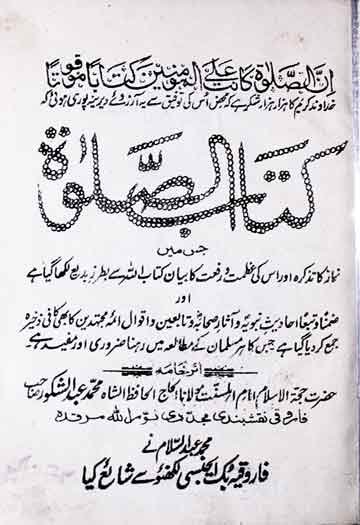 اِنَّ الصَّلٰوةَ كَانَتْ عَلَى الْمُؤْمِنِيْنَ كِتَابًا مَّوْقُوْتًا
خداوند کریم کا ہزار ہزار شکر ہے کہ محض اُس کی توفیق سے یہ آرزوئے دیرینہ پوری ہوئی کہ
کتاب الصّلوٰۃ
جس میں
نماز کا تذکرہ اور اس کی عظمت و رفعت کا بیان کتاب اللہ سے بطرز بدیع لکھا گیا ہے
اور
ضمناً و تبعاً احادیث نبویہ و آثار صحابہ و تابعین و اقوال ائمہ مجتہدین کا بھی کافی ذخیرہ
جمع کر دیا گیا ہے جس کا ہر مسلمان کے مطالعہ میں رہنا ضروری اور مفید ہے
از خامہ
حضرت حجۃ الاسلام امام اہلسنت مولانا الحاج الحافظ الشاہ محمد عبد الشکور صاحب
فاروقی نقشبندی مجددی نور اللہ مرقدہ
محمد عبد السلام نے
فاروقیہ بک ایجنسی لکھنؤ سے شائع کیا